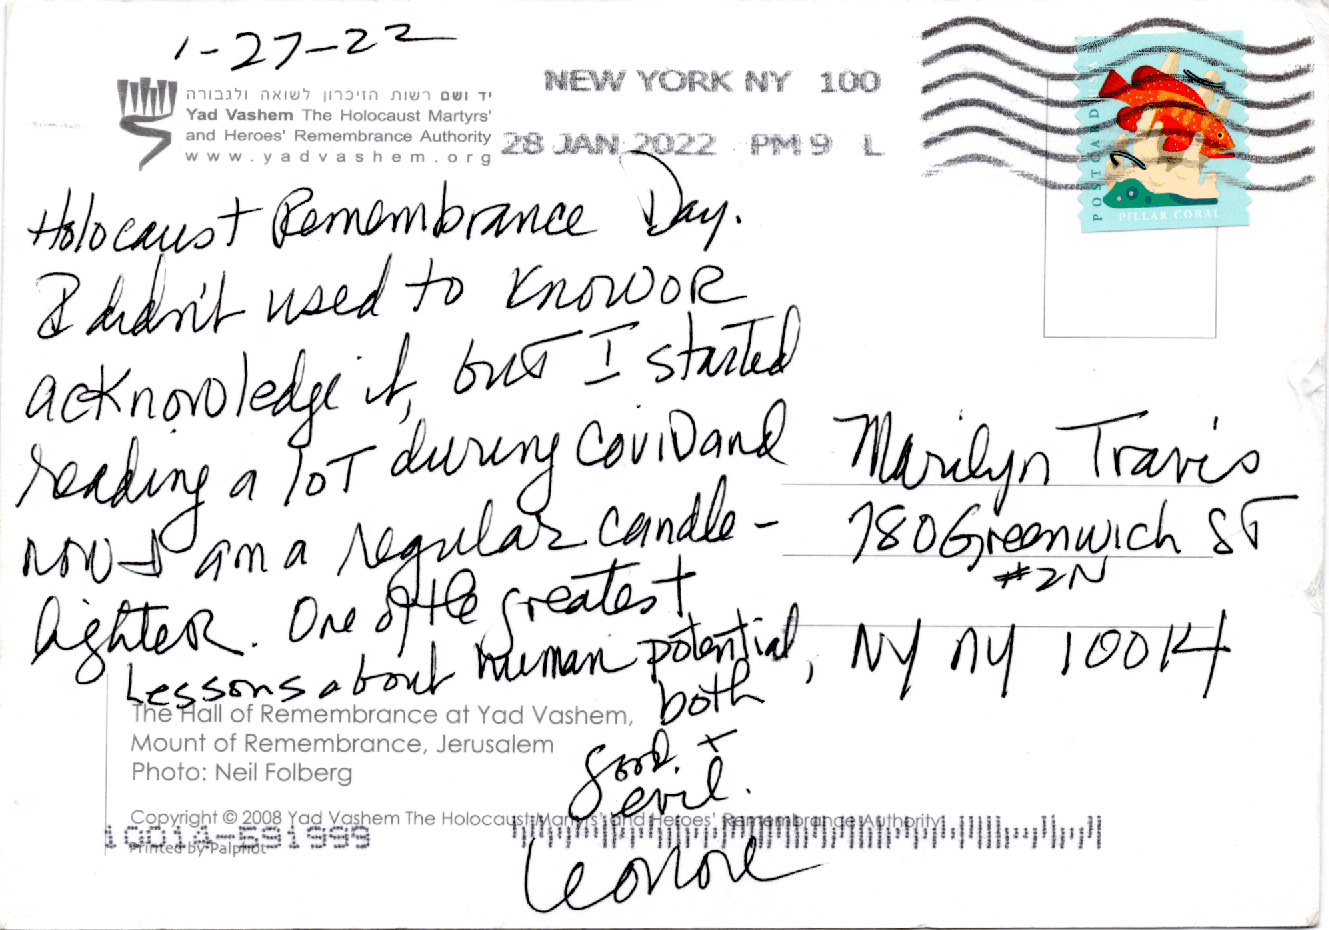 1-27-22
יד ושם רשות הזיכרון לשואה ולגבורה
Yad Vashem The Holocaust Martyrs'
and Heroes' Remembrance Authority
www.yadvashem.org
NEW YORK NY 100
28 JAN 2022 PM 9 L
POSTCARD
PILLAR CORAL
Holocaust Remembrance Day.
I didn't used to know or
acknowledge it, but I started
reading a lot during Covid and
now I am a regular candle-
lighter. One of the greatest
Lessons about human potential,
both
good +
evil.
Leonore
Marilyn Travis
780 Greenwich ST
#2N
NY NY 10014
The Hall of Remembrance at Yad Vashem,
Mount of Remembrance, Jerusalem
Photo: Neil Folberg
Copyright © 2008 Yad Vashem The Holocaust Martyrs' and Heroes' Remembrance Authority
10014-591999
Printed by Palphot